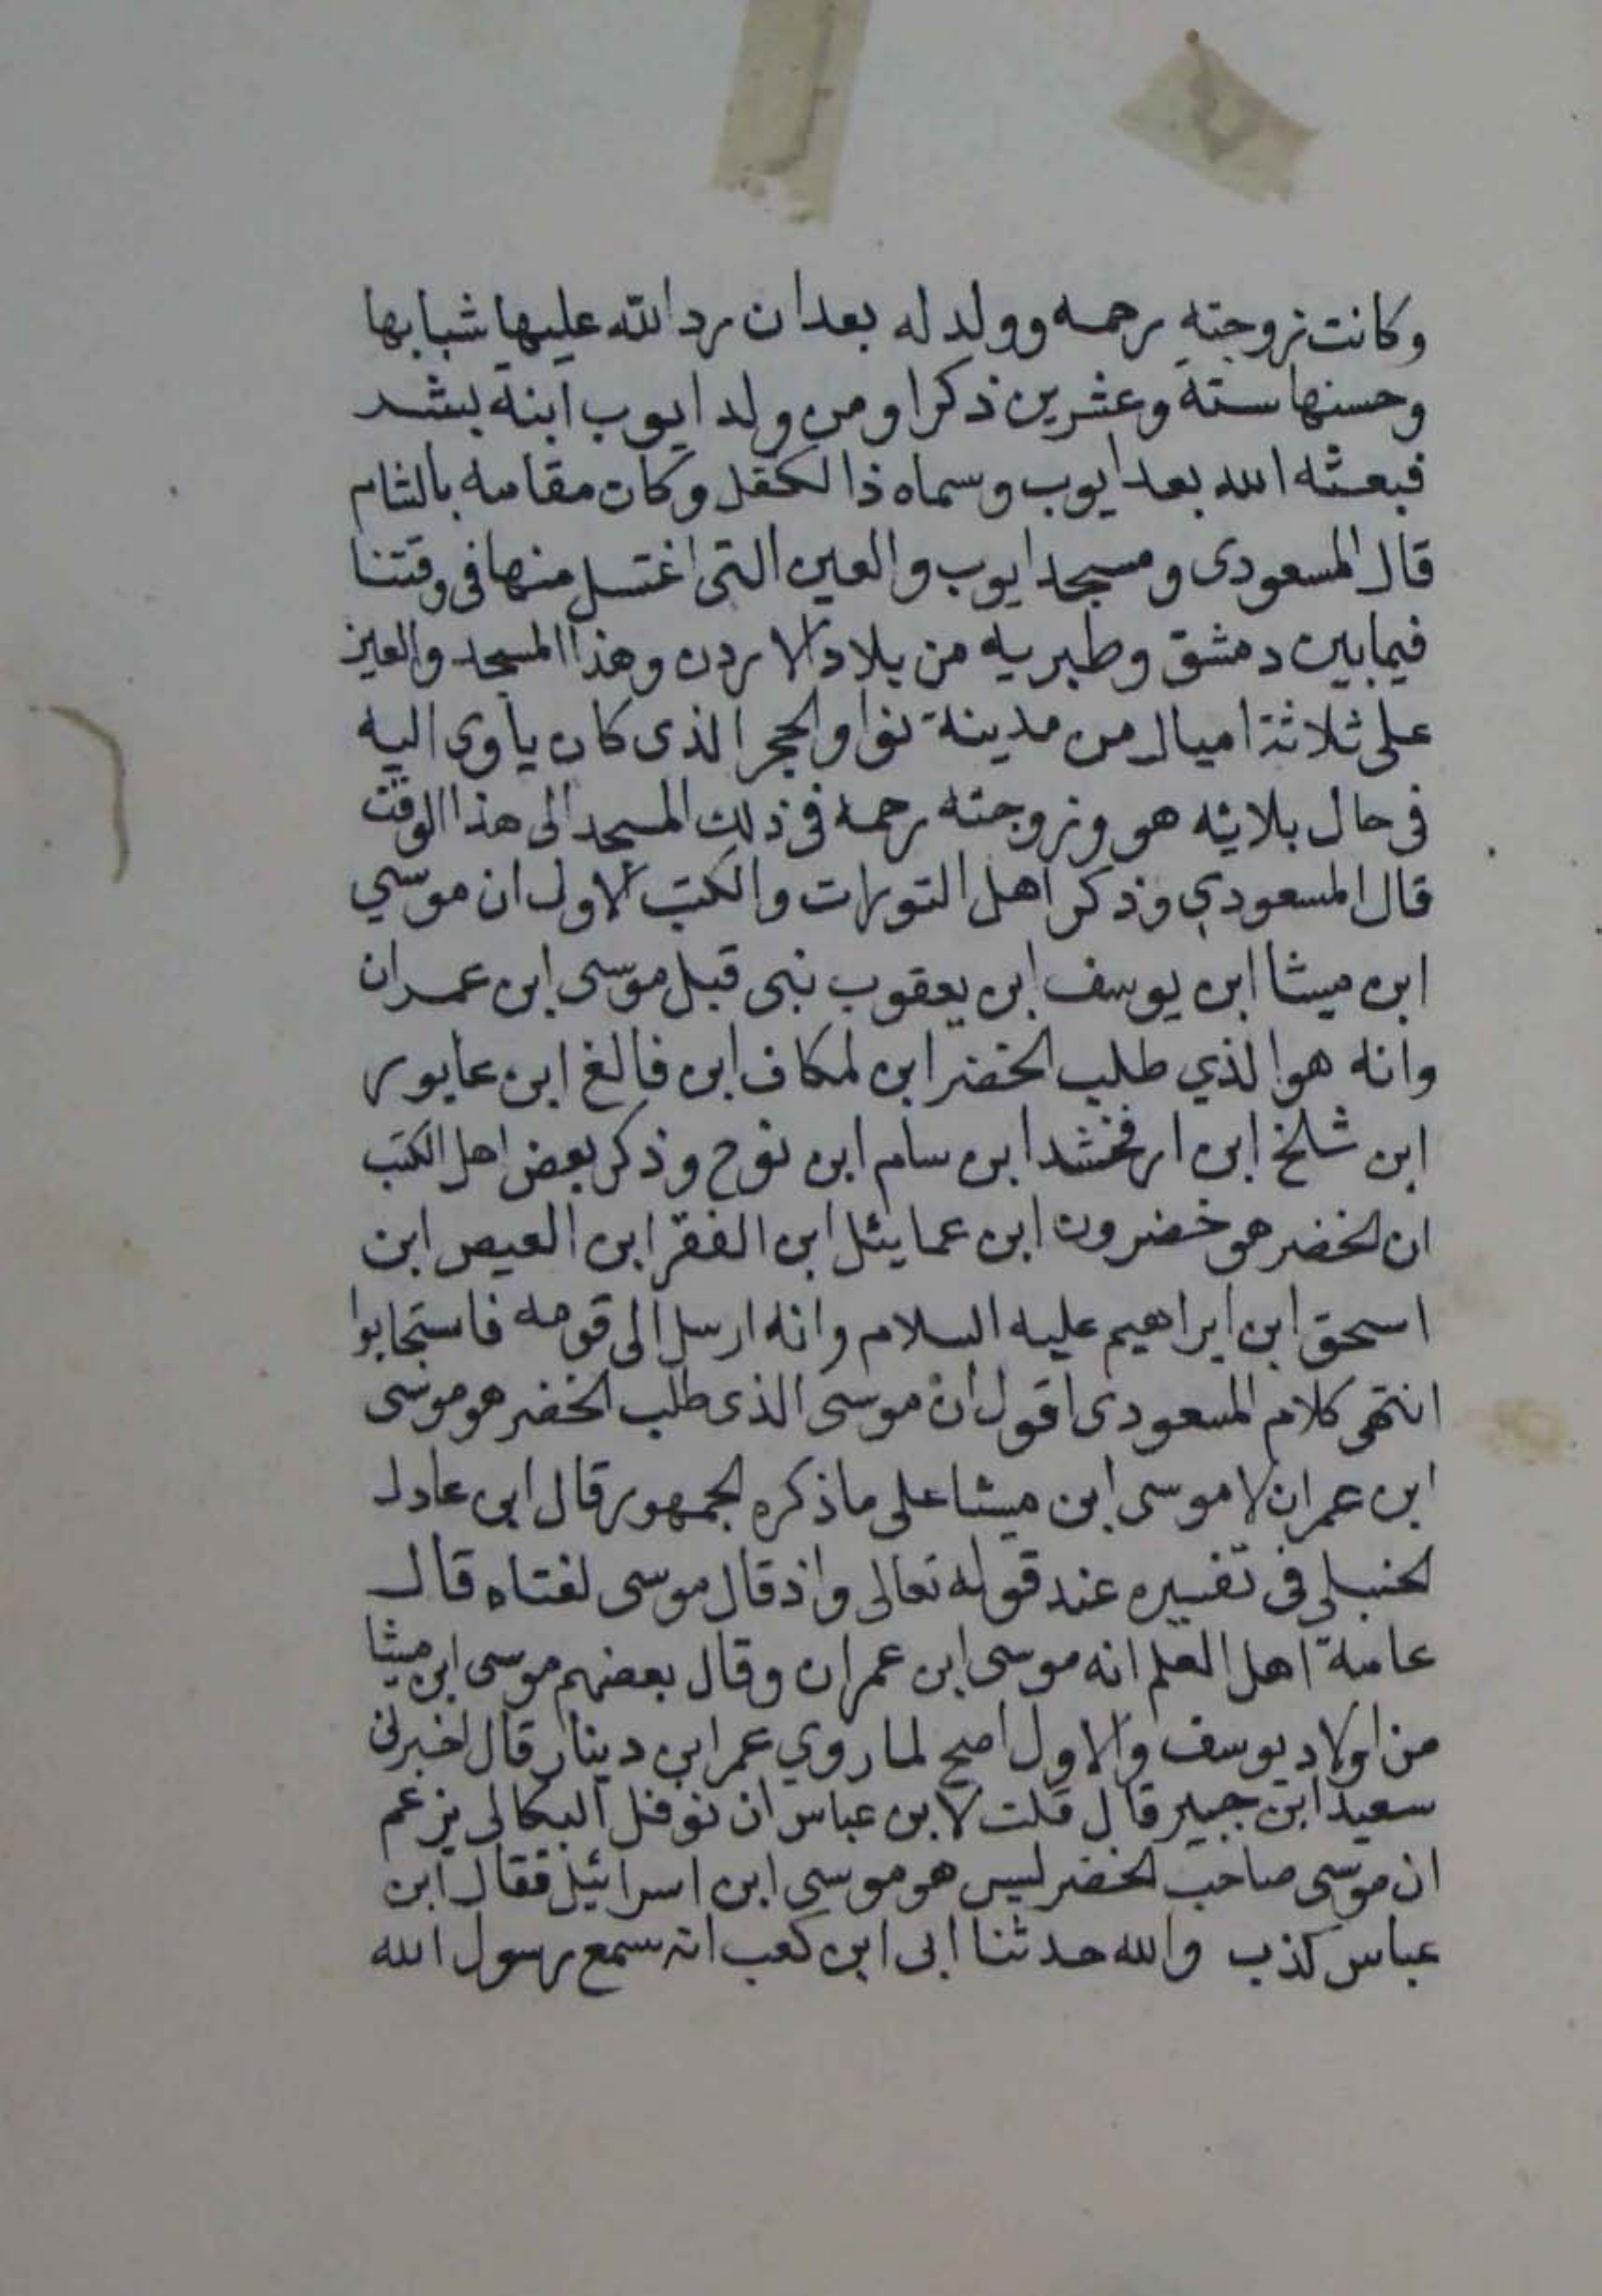 وكانت زوجته رحمه وولد له بعد ان رد الله عليها شبابها
وحسنها ستة وعشرين ذكرا ومن ولد ايوب ابنه بشر
فبعثه الله بعد ايوب وسماه ذا الكفل وكان مقامه بالشام
قال المسعودى ومسجد ايوب والعين التى اغتسل منها فى وقتنا
فيما بين دمشق وطبريه من بلاد الاردن وهذا المسجد والعين
على ثلاثة اميال من مدينة نوا والحجر الذى كان ياوى اليه
فى حال بلائه هو وزوجته رحمه فى ذلك المسجد الى هذا الوقت
قال المسعودي وذكر اهل التورات والكتب الاول ان موسي
ابن ميشا ابن يوسف ابن يعقوب نبى قبل موسى ابن عمران
وانه هو الذي طلب الخضر ابن لمكاف ابن فالغ ابن عابور
ابن شلخ ابن ارفخشد ابن سام ابن نوح وذكر بعض اهل الكتب
ان الخضر هو خضرون ابن عمايئل ابن الففر ابن العيص ابن
اسحق ابن ابراهيم عليه السلام وانه ارسل الى قومه فاستجابوا
انتهى كلام المسعودى اقول ان موسى الذى طلب الخضر هو موسى
ابن عمران لا موسى ابن ميشا على ما ذكره الجمهور قال ابن عادل
الحنبلي فى تفسيره عند قوله تعالى واذ قال موسى لفتاه قال
عامة اهل العلم انه موسى ابن عمران وقال بعضهم موسى ابن ميشا
من اولاد يوسف والاول اصح لما روي عمر ابن دينار قال اخبرنى
سعيد ابن جبير قال قلت لابن عباس ان نوفل البكالى يزعم
ان موسى صاحب الخضر ليس هو موسى ابن اسرائيل فقال ابن
عباس كذب والله حدثنا ابى ابن كعب انه سمع رسول الله